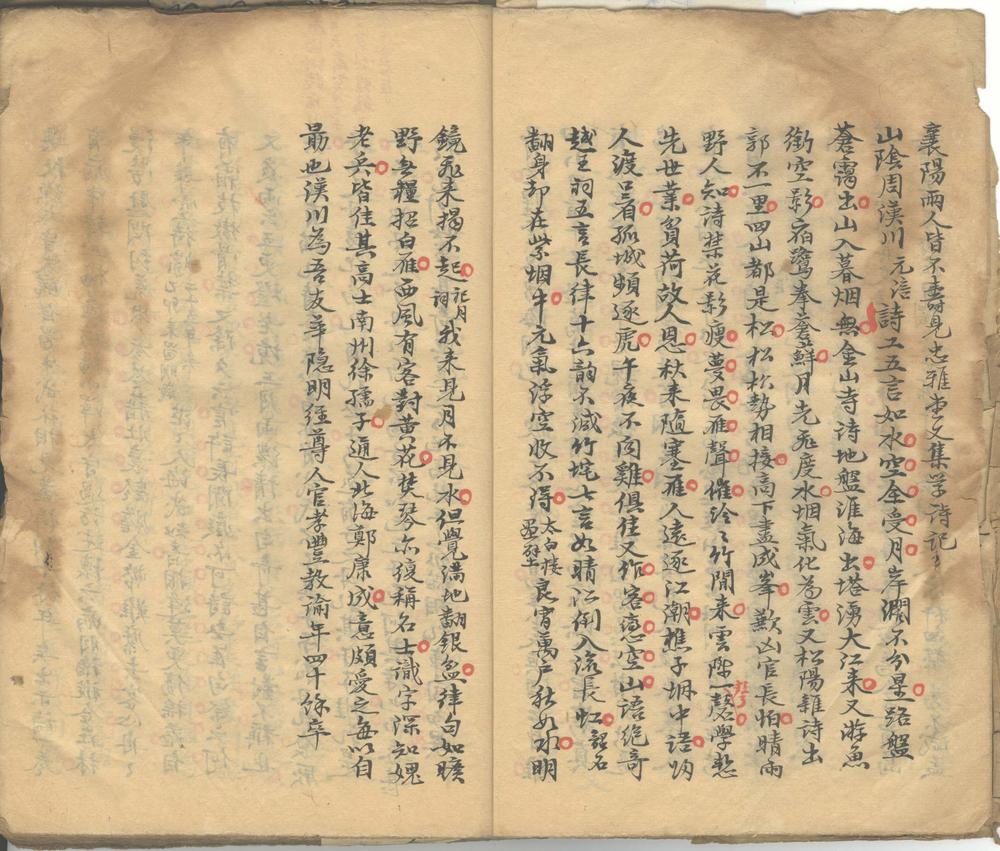 襄陽兩人皆不壽見忠雅堂文集学詩記
山陰周漢川元洁詩工五言如水空全受月岸濶不分星路盤
蒼靄出山入暮烟無金山寺詩地盤淮海出塔湧大江来又游魚
銜空影宿鷺拳蒼鮮月光飛度水烟氣化為雲又松陽雜詩出
郭不一里四山都是松松松勢相接高下畫成峯歉凶官長怕晴雨
野人知詩禁花影瘦夢畏雁聲催泠泠竹間来雲際一磬學愁
先世業負荷故人恩秋来隨塞雁人遠逐江潮樵子烟中語
人渡呂看孤城頻逐虎午夜不闻雞俱佳又作客憑空山語絶奇
越王祠五言長律十六韵不減竹垞七言如晴江倒入流長虹
翻身却在紫烟牛元氣浮空收不得太白樓良宵萬户秋如水明
鏡飛来揭不起祀月詞我来見月不見水但覺滿地翻銀盆律句如曠
野無糧招白雁西風有客對黄花焚琴亦復稱名士識字深知媿
老兵皆佳其高士南州徐孺子通人北海鄭康成意頗愛之每以自
勗也漢川為吾友羊隐明經尊人官孝豐教諭年四十餘卒